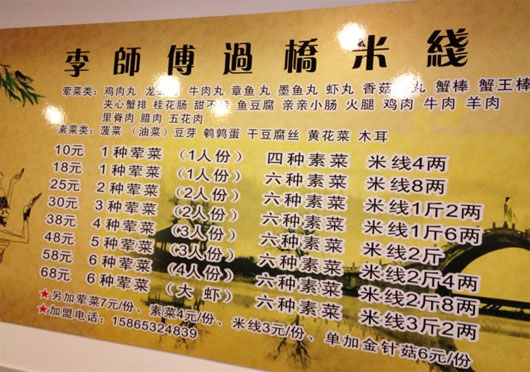 李師傅過橋米綫
荤菜类：鸡肉丸 牛肉丸 章鱼丸 墨鱼丸 虾丸 香菇 丸 蟹棒 蟹王棒
夹心蟹排 桂花肠 甜不 鱼豆腐 亲亲小肠 火腿 鸡肉 牛肉 羊肉
里脊肉 腊肉 五花肉
素菜类：菠菜 （油菜）豆芽 鹌鹑蛋 干豆腐丝 黄花菜 木耳
10元 1种荤菜 （1人份） 四种素菜 米线4两
18元 1种荤菜 （1人份） 六种素菜 米线8两
25元 2种荤菜 （2人份） 六种素菜 米线1斤2两
30元 3种荤菜 （2人份） 六种素菜 米线1斤6两
38元 4种荤菜 （2人份） 六种素菜 米线2斤
48元 5种荤菜 （3人份） 六种素菜 米线2斤4两
58元 6种荤菜 （4人份） 六种素菜 米线2斤8两
68元 6种荤菜 （大虾） 六种素菜 米线3斤2两
★另加荤菜7元/份、素菜4元/份、米线3元/份、单加金针菇6元/份
★加盟电话：15865324839